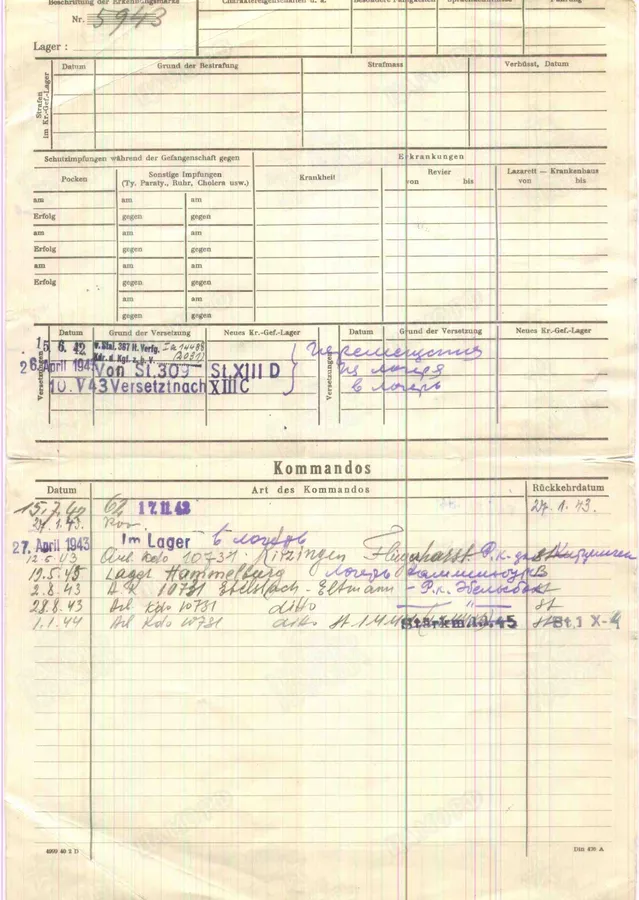 Beschriftung der Erkennungsmarke
Nr. 5943
Lager :
Charaktereigenschaften u. ä.
Besondere Fähigkeiten
Sprachkenntnisse
Führung
Strafen im Kr.-Gef.-Lager
Datum Grund der Bestrafung Strafmass Verbüsst, Datum
Schutzimpfungen während der Gefangenschaft gegen Erkrankungen
Pocken Sonstige Impfungen Krankheit Revier Lazarett — Krankenhaus
(Ty. Paraty., Ruhr, Cholera usw.) von bis von bis
am am am
Erfolg gegen gegen
am am am
Erfolg gegen gegen
am am am
Erfolg gegen gegen
am am
gegen gegen
Versetzungen Datum Grund der Versetzung Neues Kr.-Gef.-Lager Versetzungen Datum Grund der Versetzung Neues Kr.-Gef.-Lager
15 6. 42 v. Stal. 367 lt. Verfg.
Kdr. d. Kgf. z. b. V. перемещения
26. April 1943 Von St. 309 St. XIII D из лагеря
10. V 43 Versetzt nach XIII C в лагерь
Kommandos
Datum Art des Kommandos Rückkehrdatum
15.7.42 62 17.11.42 27.1.43.
27.1.43.
27. April 1943 Im Lager в лагерь
Arb. Kdo 10731 Kitzingen Fliegerhorst Р.к.
19.5.43 Lager Hammelburg лагерь
2.8.43 A.K. 10731 Ebelsbach - Eltmann - Р.к.
28.8.43 Arb Kdo 10731 ditto — " — st
1.1.44 Arb Kdo 10731 ditto
4999 40 2 D Din 476 A